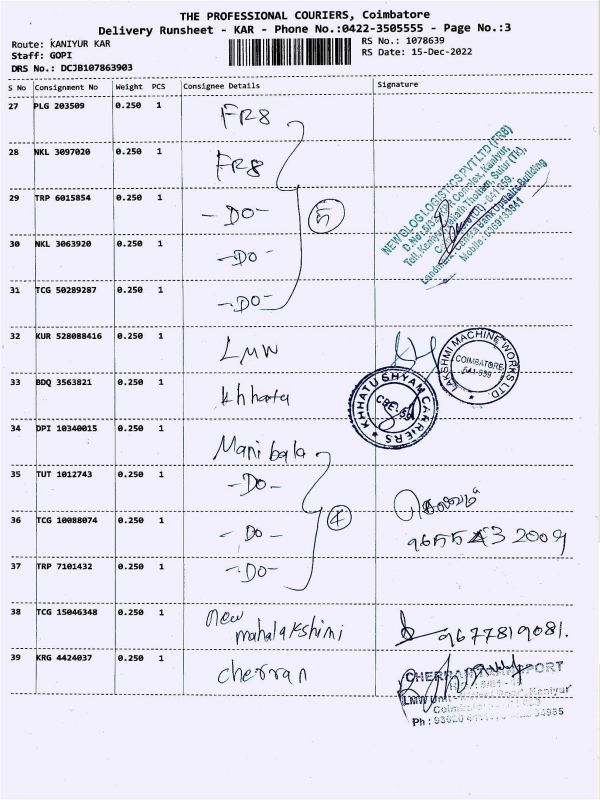 THE PROFESSIONAL COURIERS, Coimbatore
Delivery Runsheet - KAR - Phone No.:0422-3505555 - Page No.:3
Route: KANIYUR KAR
Staff: GOPI
DRS No.: DCJB107863903
RS No.: 1078639
RS Date: 15-Dec-2022
S No Consignment No Weight PCS Consignee Details Signature
27 PLG 203509 0.250 1 FR8
28 NKL 3097020 0.250 1 FR8
29 TRP 6015854 0.250 1 -DO-
5
30 NKL 3063920 0.250 1 -DO-
31 TCG 50289287 0.250 1 -DO-
NEW GLOG LOGISTICS PVT LTD (FR8)
Landmark: Canara Bank Upstairs Building
32 KUR 528088416 0.250 1 LMW
LAKSHMI MACHINE WORKS LTD.
COIMBATORE
641-659
33 BDQ 3563821 0.250 1 Khhatu
KHHATU SHYAM CARRIERS
CBE-59
34 DPI 10340015 0.250 1 Manibala
35 TUT 1012743 0.250 1 -DO-
36 TCG 10088074 0.250 1 -DO-
4
37 TRP 7101432 0.250 1 -DO-
38 TCG 15046348 0.250 1 new
mahalakshimi
9677819081.
39 KRG 4424037 0.250 1 cherran
CHERRAN
LMW Unit
Kaniyur